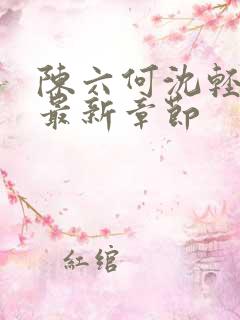 陳六何沈輕
最新章節
紅綰